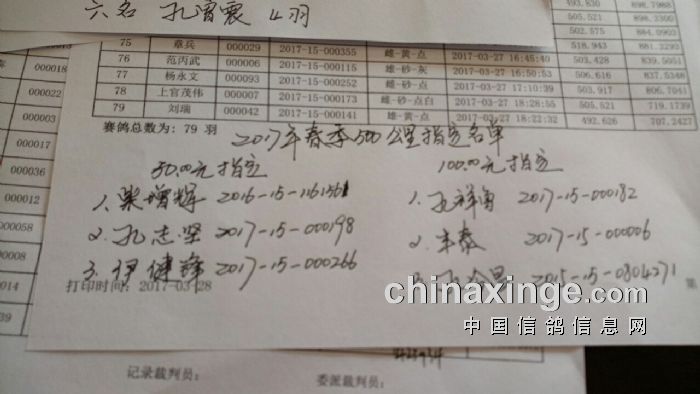 六名 孔晋震 4羽
493.830 898.7988
505.521 898.3300
502.575 884.0903
75 章兵 000029 2017-15-000355 雄-黄-点 2017-03-27 16:45:40 518.943 881.3293
76 范丙武 000006 2017-15-000115 雌-砂-灰 2017-03-27 16:50:53 503.428 839.5051
77 杨永文 000093 2017-15-000252 雌-砂-点 2017-03-27 17:10:39 506.616 837.5348
78 上官茂伟 000007 2017-15-000317 雌-砂-点白 2017-03-27 18:28:55 503.918 806.7041
79 刘瑞 000042 2017-15-000141 雄-黄-点 2017-03-27 18:22:32 505.521 719.1739
492.626 707.2427
赛鸽总数为: 79 羽
2017年春季500公里指定名单
50.00元指定 100.00元指定
1. 柴增辉 2016-15-116156 1. 孔祥勇 2017-15-000182
2. 孔志坚 2017-15-000198 2. 丰泰 2017-15-000006
3. 伊健锋 2017-15-000266 2015-15-0804271
打印时间: 2017-03-28 第
chinaxinge.com
中国信鸽信息网
记录裁判员: 委派裁判员:
000018
000022
000003
000017
000036
000012
000058
000014
000039